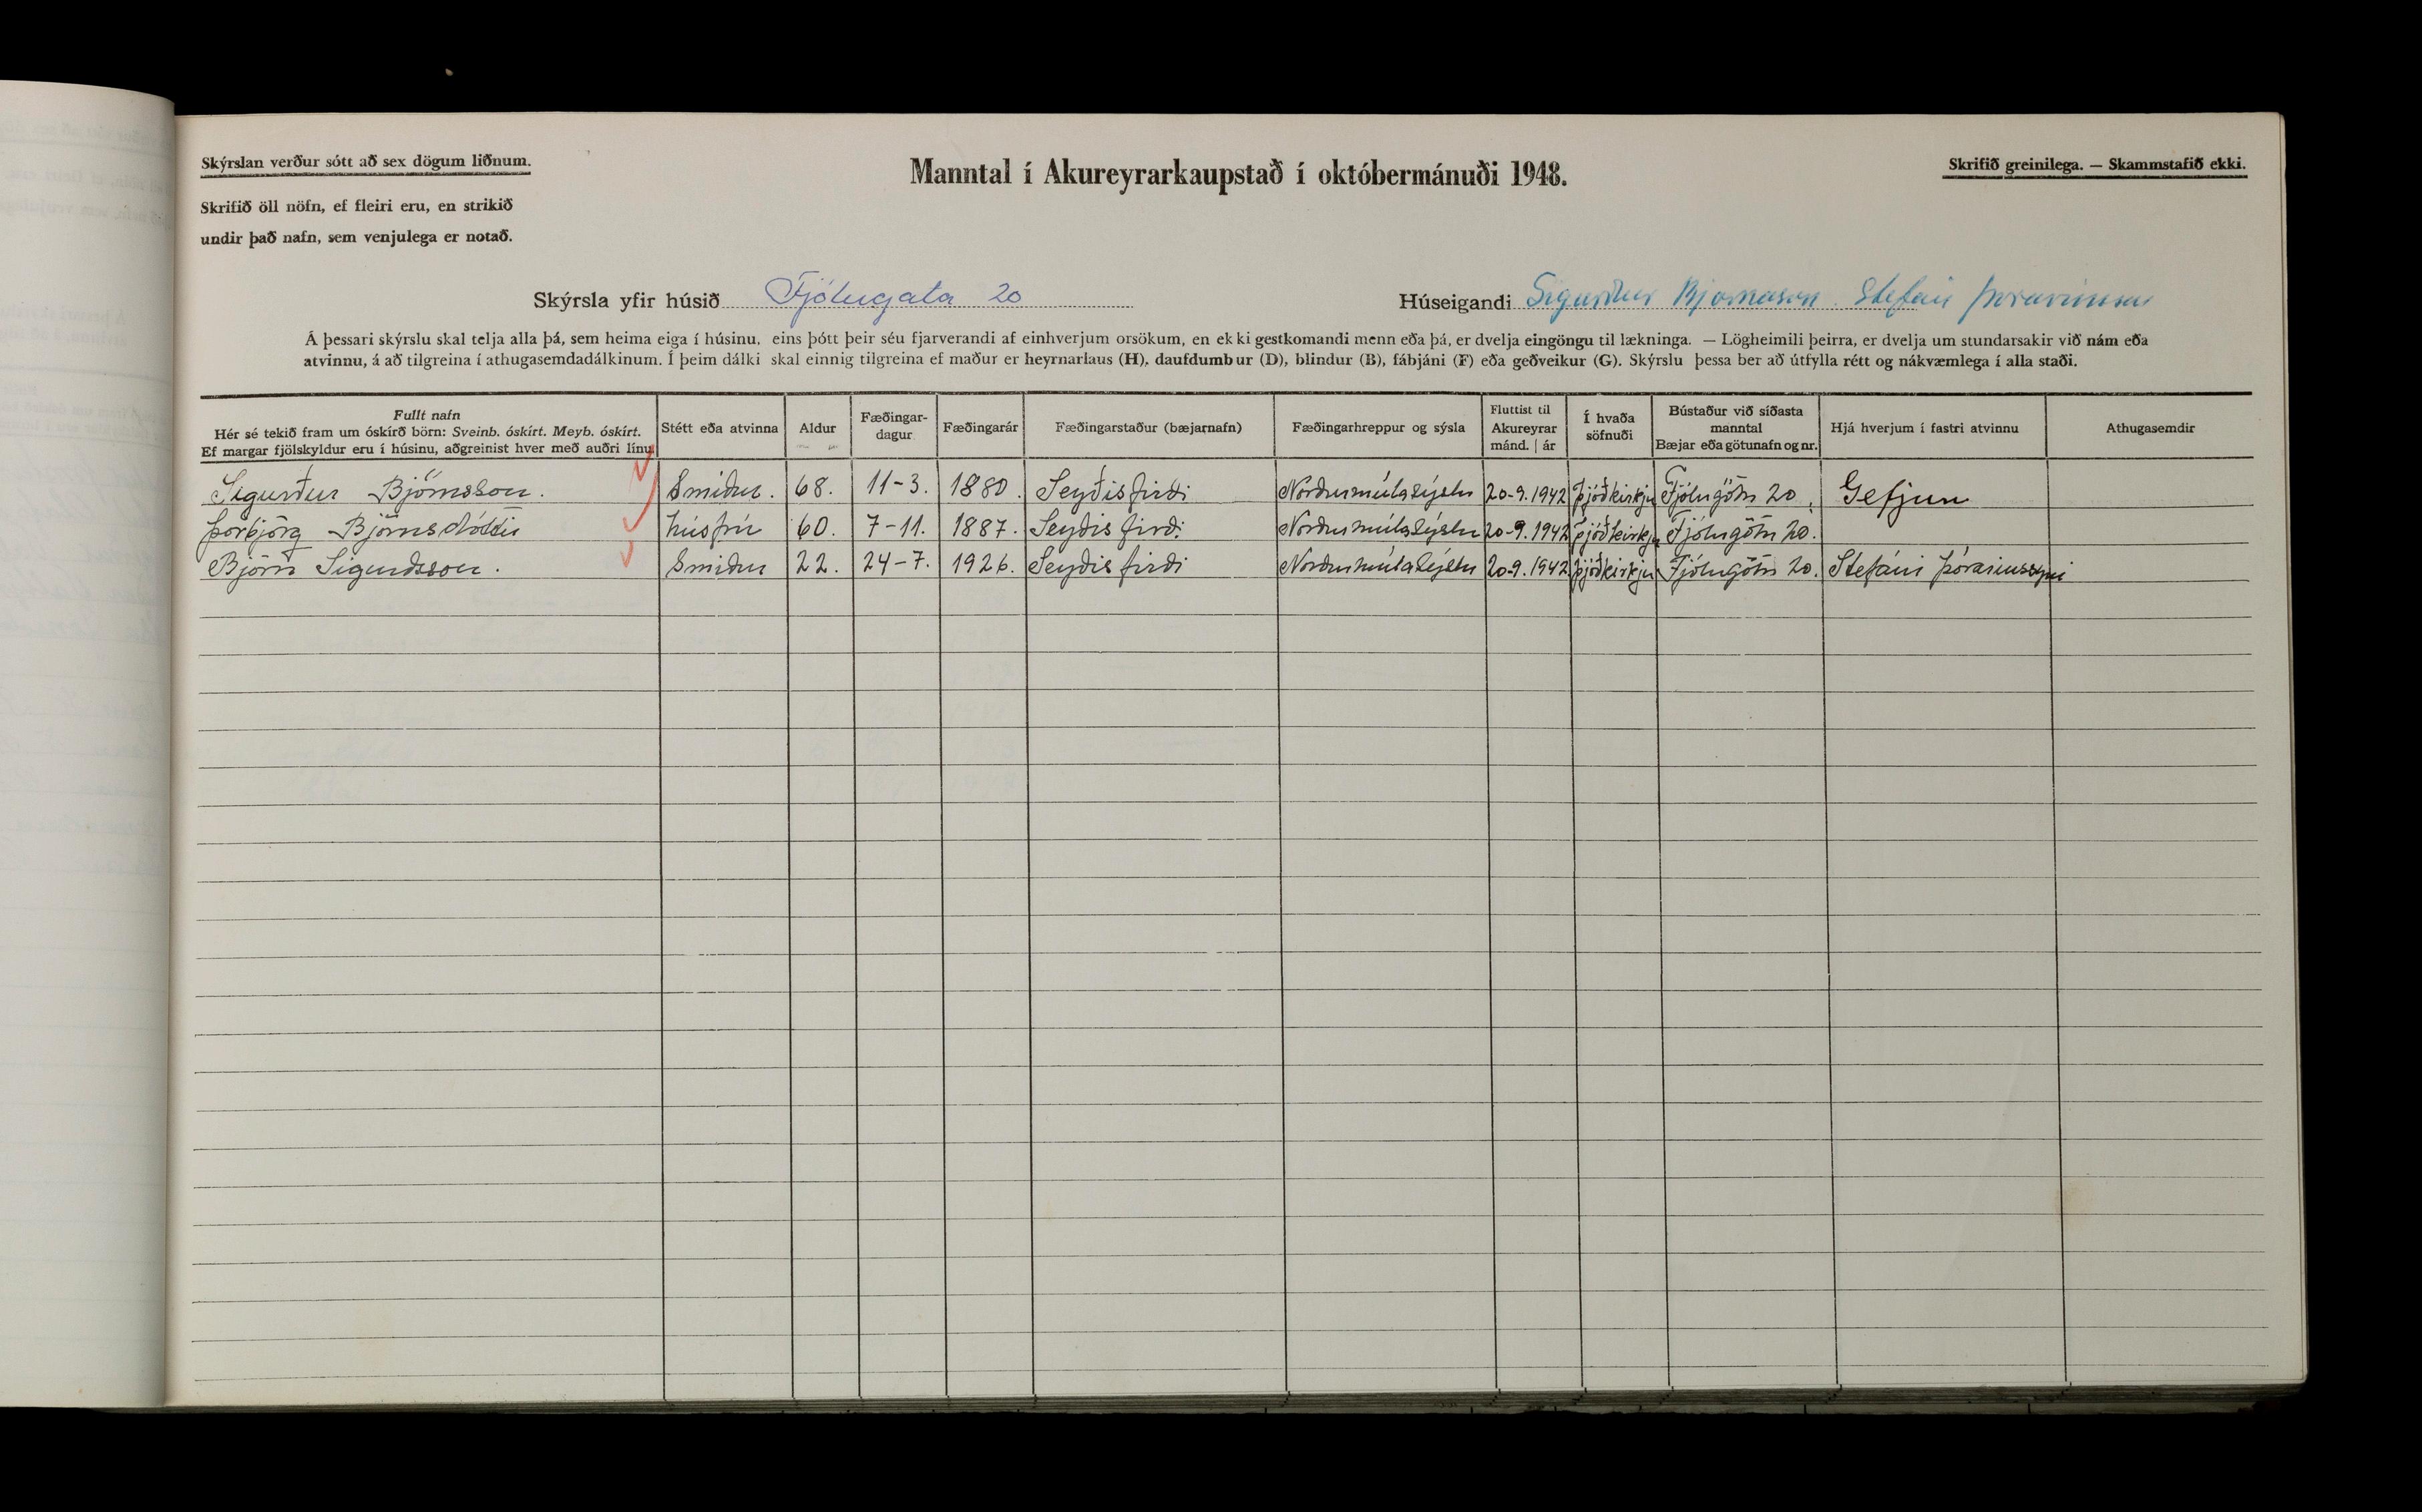 Skýrslan verður sótt að sex dögum liðnum.
Manntal í Akureyrarkaupstað í októbermánuði 1948.
Skrifið greinilega. — Skammstafið ekki.
Skrifið öll nöfn, ef fleiri eru, en strikið
undir það nafn, sem venjulega er notað.
Skýrsla yfir húsið Fjólugata 20
Húseigandi Sigurður Bjornason Stefán
Á þessari skýrslu skal telja alla þá, sem heima eiga í húsinu, eins þótt þeir séu fjarverandi af einhverjum orsökum, en ekki gestkomandi menn eða þá, er dvelja eingöngu til lækninga. — Lögheimili þeirra, er dvelja um stundarsakir við nám eða
atvinnu, á að tilgreina í athugasemdadálkinum. Í þeim dálki skal einnig tilgreina ef maður er heyrnarlaus (H), daufdumbur (D), blindur (B), fábjáni (F) eða geðveikur (G). Skýrslu þessa ber að útfylla rétt og nákvæmlega í alla staði.
Fullt nafn
Hér sé tekið fram um óskírð börn: Sveinb. óskírt. Meyb. óskírt.
Ef margar fjölskyldur eru í húsinu, aðgreinist hver með auðri línu
Stétt eða atvinna
Aldur
Fæðingar-
dagur
Fæðingarár
Fæðingarstaður (bæjarnafn)
Fæðingarhreppur og sýsla
Fluttist til
Akureyrar
mánd. | ár
Í hvaða
söfnuði
Bústaður við síðasta
manntal
Bæjar eða götunafn og nr.
Hjá hverjum í fastri atvinnu
Athugasemdir
Sigurður Björnsson. Smiður. 68. 11-3. 1880. Seyðisfirði Norðurmúlasýslu 20-9.1942 Þjóðkirkju Fjólugötu 20. Gefjun
Þorbjörg Björnsdóttir húsfrú 60. 7-11. 1887. Seyðisfirði Norðurmúlasýslu 20-9.1942 Þjóðkirkju Fjólugötu 20.
Björn Sigurdsson. Smiður 22. 24-7. 1926. Seyðisfirði Norðurmúlasýslu 20-9.1942 Þjóðkirkju Fjólugötu 20. Stefáni Þórarinssyni